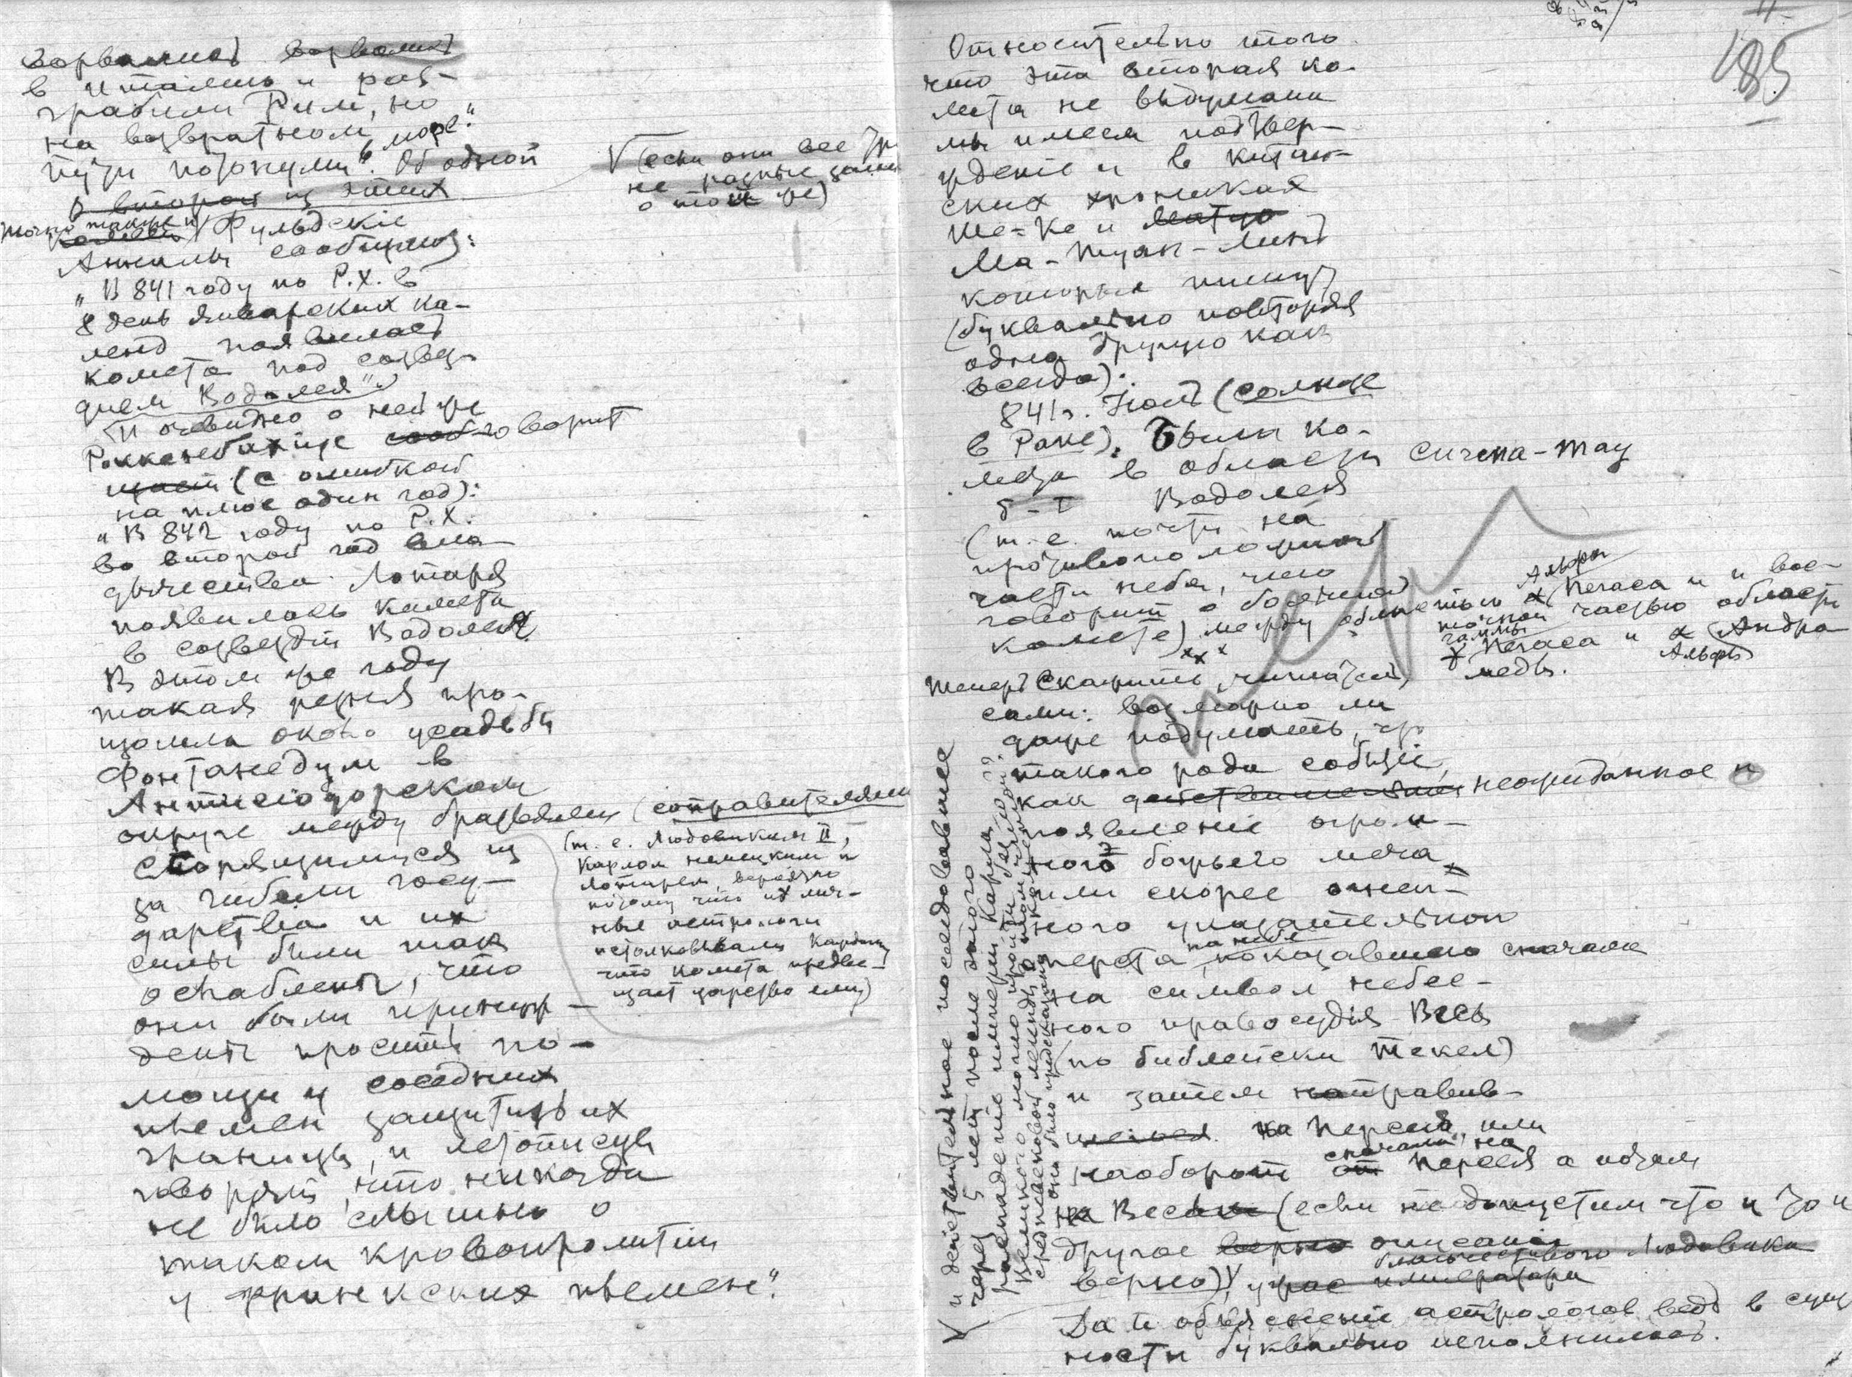 ворвались ворвались
в Италию и раз-
грабили Рим, но
на возвратном
пути потонули в море". Об одной
и второй из этих
Точно также и Фульдские
Анналы сообщают:
"В 841 году по Р.Х. в
8 день январских ка-
ленд появилась
комета под созвез-
дием Водолея".
И очевидно о ней же
Роккенбах же сооб- говорит
щает (с ошибкой
на плюс один год):
"В 842 году по Р.Х.
во второй год вла-
дычества Лотаря
появилась комета
в созвездии Водолея
В этом же году
такая резня про-
изошла около усадьбы
Фонтанедум в
Антисиодорском
округе между братьями (соправителями
(т. е. Людовиком II,
Карлом немецким и
Лотарем, вероятно
потому что их лич-
ные астрологи
истолковывали каждому
что комета предве-
щает царство ему)
спорящимися из
за гибели госу-
дарства и их
силы были так
ослаблены, что
они были принуж-
дены просить по-
мощи у соседних
племен защитить их
границы, и летописцы
говорят, что никогда
не было слышно о
таком кровопролитии
у франкских племен".
V (если они все
не разные записи
о той же)
185
Относительно того
что эта вторая ко-
мета не выдумана
мы имеем подтвер-
ждение и в китай-
ских хрониках
Ше-Ке и Матуо
Ма-Туан-Линь
которые пишут
(буквально повторяя
одна другую как
всегда):
841г. Июль (солнце
в Раке). Были ко-
меты в области сичена-тау
б-τ Водолея
(т. е. почти на
противоположной
части неба, чем
говорит о боевой
комете) между областью α Альфы Пегаса и и вос-
точной частью области
γ гаммы Пегаса и α Альфы Андро
меды.
Теперь скажите, читатель,
сами: возможно ли
даже подумать, что
такого рода событие,
как действительно неожиданное
появление огром-
ного божьего меча
или скорее огнен-
ного указательного
перста, на небе показавшего сначала
на символ небес-
ного правосудия Весы
(по библейски Текел)
и затем направив-
шегося на Персея, или
наоборот от сначала на Персея а потом
на Весы (если не допустим что и то и
другое верно описано
верно), V у нас благочестивого Людовика
императора
Да и объяснение астрологов ведь в сущ
ности буквально исполнилось.
V и действительное последовавшее
через 5 лет после этого
распадение империи Карла
Великого могло пройти без того?
средневековой легенды о том, что
оно было предсказано